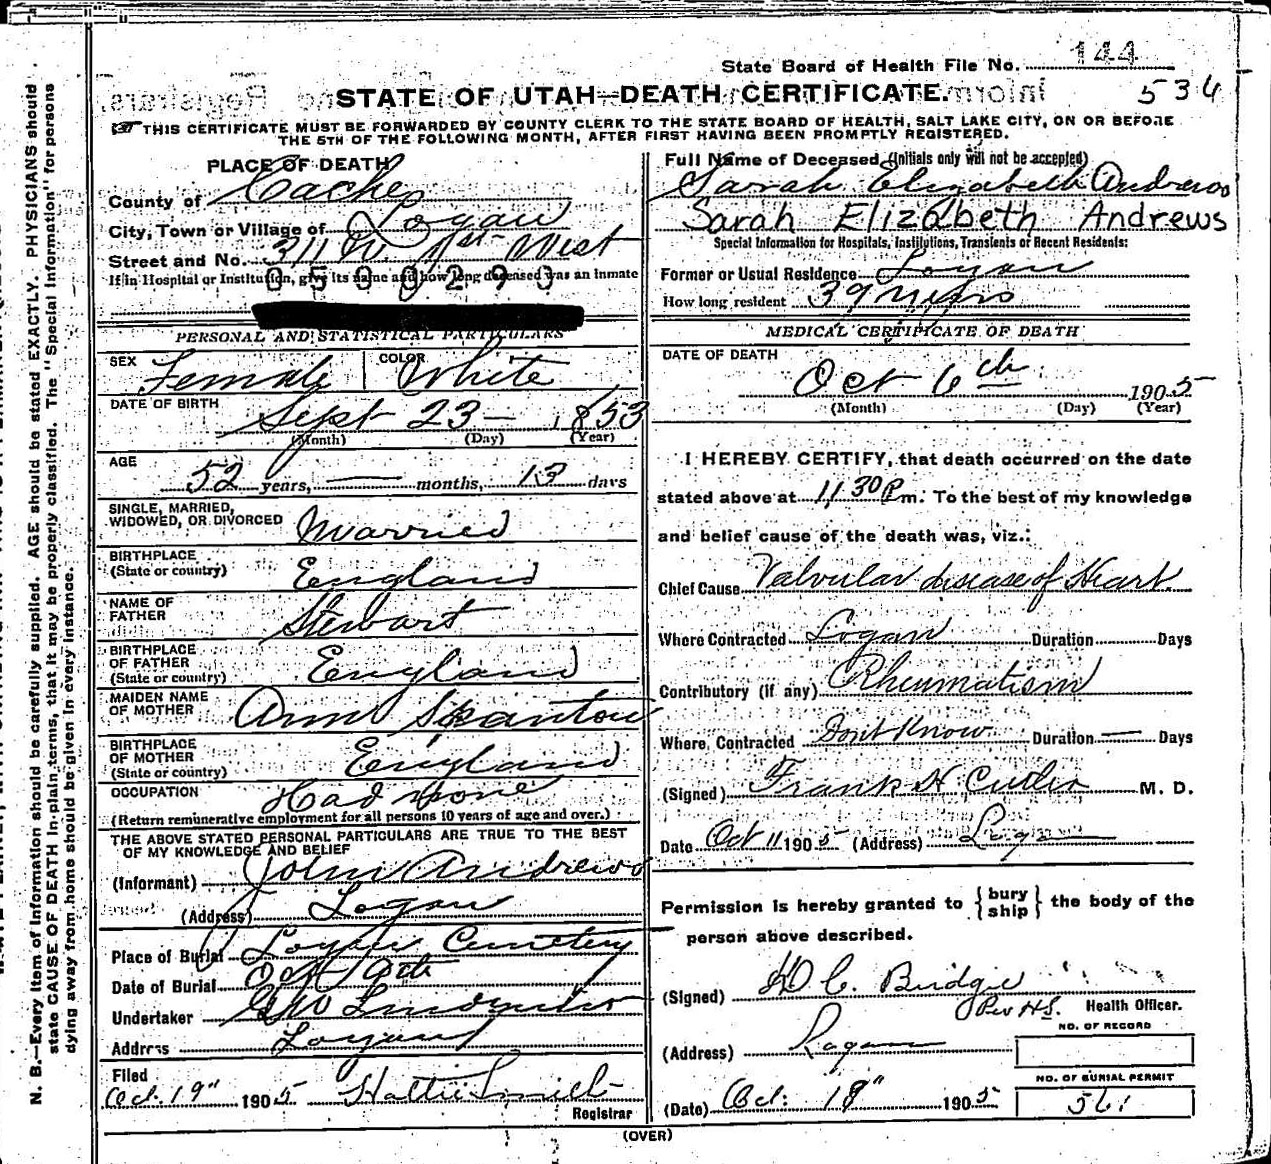 State Board of Health File No. 144
534
STATE OF UTAH—DEATH CERTIFICATE.
THIS CERTIFICATE MUST BE FORWARDED BY COUNTY CLERK TO THE STATE BOARD OF HEALTH, SALT LAKE CITY, ON OR BEFORE
THE 5TH OF THE FOLLOWING MONTH, AFTER FIRST HAVING BEEN PROMPTLY REGISTERED.
PLACE OF DEATH
County of Cache
City, Town or Village of Logan
Street and No. 311 N. 1st West
If in Hospital or Institution, give its name and how long deceased was an inmate
0500293
PERSONAL AND STATISTICAL PARTICULARS
SEX Female COLOR White
DATE OF BIRTH Sept 23 — 1853
(Month) (Day) (Year)
AGE
52 years, — months, 13 days
SINGLE, MARRIED,
WIDOWED, OR DIVORCED Married
BIRTHPLACE
(State or country) England
NAME OF
FATHER Stewart
BIRTHPLACE
OF FATHER
(State or country) England
MAIDEN NAME
OF MOTHER Ann Skanton
BIRTHPLACE
OF MOTHER
(State or country) England
OCCUPATION Had none
(Return remunerative employment for all persons 10 years of age and over.)
THE ABOVE STATED PERSONAL PARTICULARS ARE TRUE TO THE BEST
OF MY KNOWLEDGE AND BELIEF
(Informant) John Andrews
(Address) Logan
Place of Burial Logan Cemetery
Date of Burial Oct
Undertaker
Address Logan
Filed
Oct. 19" 1905 Hattie Smith
Registrar
Full Name of Deceased (Initials only will not be accepted)
Sarah Elizabeth Andrews
Sarah Elizabeth Andrews
Special Information for Hospitals, Institutions, Transients or Recent Residents:
Former or Usual Residence Logan
How long resident 39 years
MEDICAL CERTIFICATE OF DEATH
DATE OF DEATH
Oct 6th 1905
(Month) (Day) (Year)
I HEREBY CERTIFY, that death occurred on the date
stated above at 11 30 P m. To the best of my knowledge
and belief cause of the death was, viz.:
Chief Cause Valvular disease of Heart
Where Contracted Logan Duration Days
Contributory (if any) Rheumatism
Where Contracted Dont Know Duration — Days
(Signed) Frank H Cutler M. D.
Date Oct 11 1905 (Address) Logan
Permission is hereby granted to {bury
ship} the body of the
person above described.
(Signed) D C. Budge
Per HS. Health Officer.
NO. OF RECORD
(Address) Logan
NO. OF BURIAL PERMIT
(Date) Oct. 19" 1905 561
(OVER)
N. B.—Every item of information should be carefully supplied. AGE should be stated EXACTLY. PHYSICIANS should
state CAUSE OF DEATH in plain terms, that it may be properly classified. The "Special Information" for persons
dying away from home should be given in every instance.